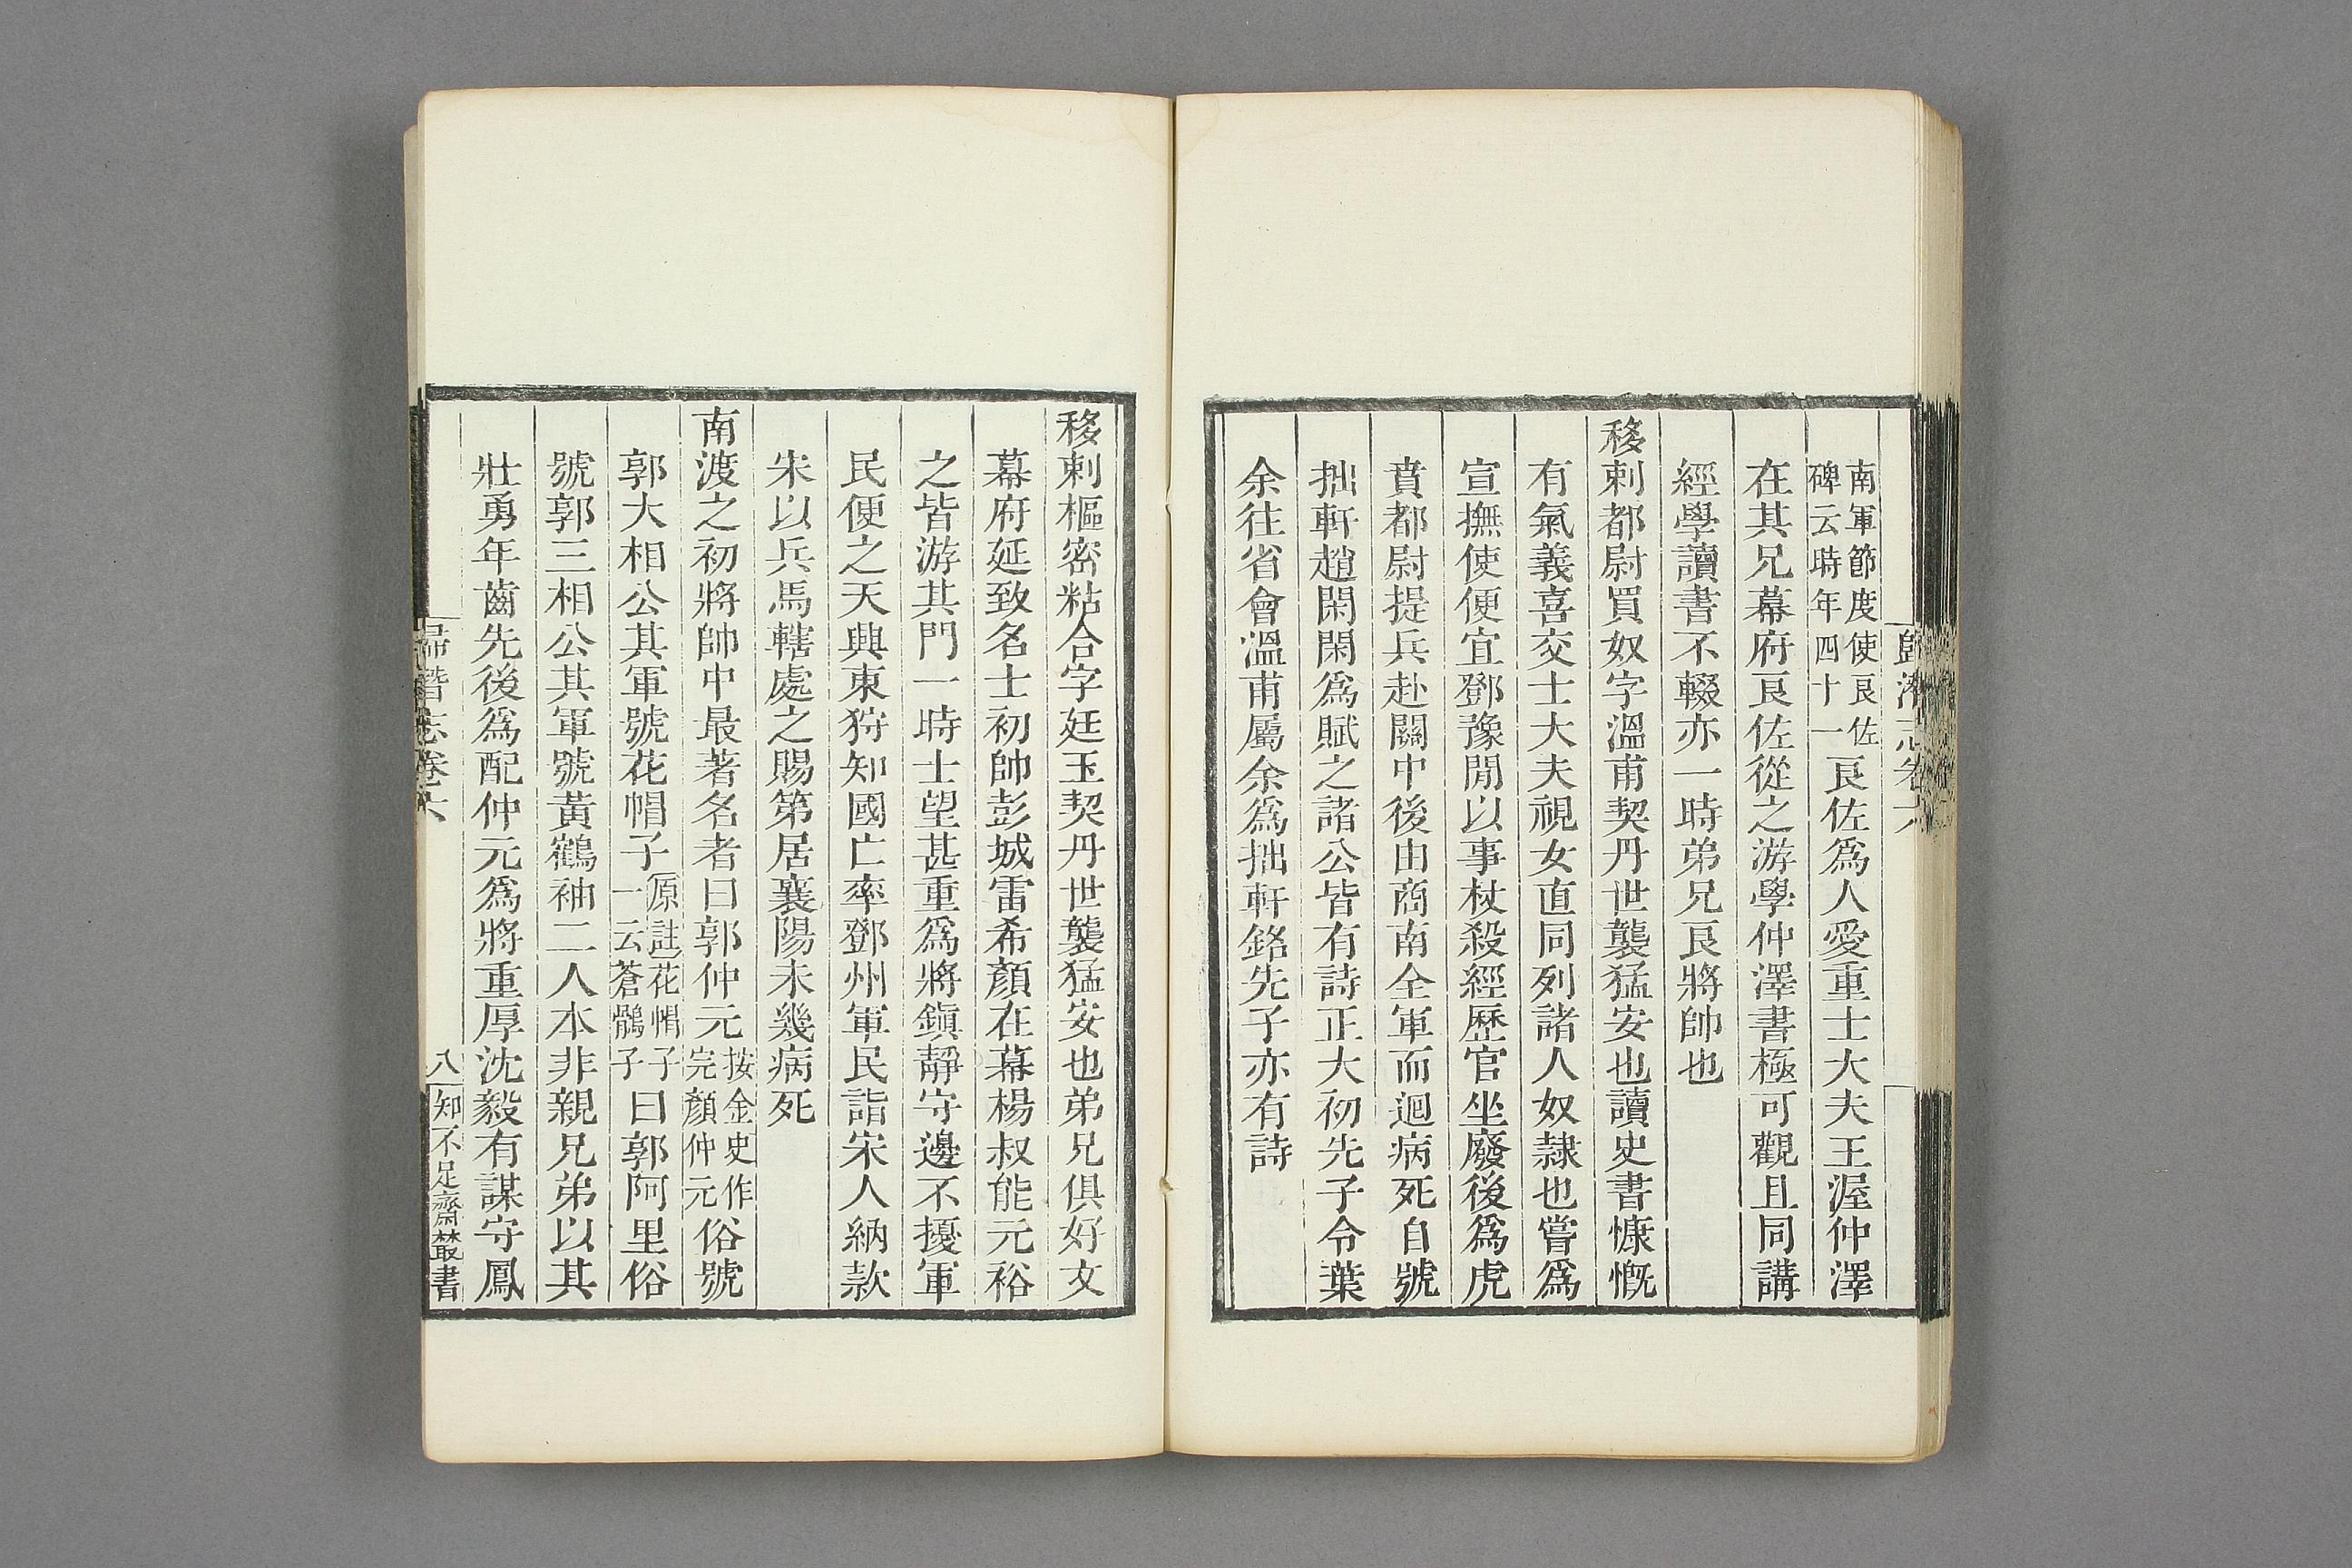 歸潛志卷六
南軍節度使良佐
碑云時年四十一
良佐爲人愛重士大夫王渥仲澤
在其兄幕府良佐從之游學仲澤書極可觀且同講
經學讀書不輟亦一時弟兄良將帥也
移剌都尉買奴字溫甫契丹世襲猛安也讀史書慷慨
有氣義喜交士大夫視女直同列諸人奴隸也嘗爲
宣撫使便宜鄧豫閒以事杖殺經歷官坐廢後爲虎
賁都尉提兵赴關中後由商南全軍而迴病死自號
拙軒趙閑閑爲賦之諸公皆有詩正大初先子令葉
余往省會溫甫屬余爲拙軒銘先子亦有詩
移剌樞密粘合字廷玉契丹世襲猛安也弟兄俱好文
幕府延致名士初帥彭城雷希顏在幕楊叔能元裕
之皆游其門一時士望甚重爲將鎭靜守邊不擾軍
民便之天興東狩知國亡率鄧州軍民詣宋人納款
宋以兵馬轄處之賜第居襄陽未幾病死
南渡之初將帥中最著名者曰郭仲元
按金史作
完顏仲元
俗號
郭大相公其軍號花帽子
原註花帽子
一云蒼鶻子
曰郭阿里俗
號郭三相公其軍號黃鶴袖二人本非親兄弟以其
壯勇年齒先後爲配仲元爲將重厚沈毅有謀守鳳
歸潛志卷六
八
知不足齋叢書